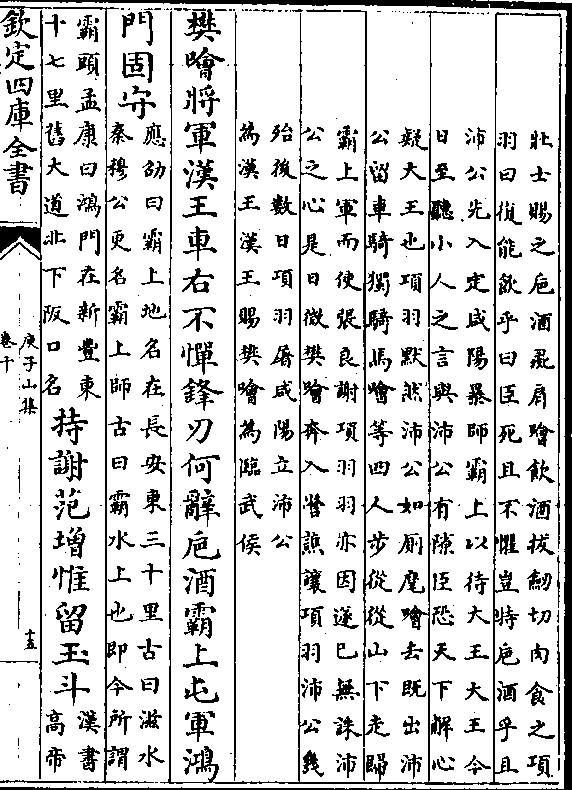 壯士賜之巵酒彘肩噲飲酒拔劒切肉食之項
羽曰復能飲乎曰臣死且不懼豈特巵酒乎且
沛公先入定咸陽暴師霸上以待大王大王今
日至聽小人之言與沛公有隙臣恐天下解心
疑大王也項羽默然沛公如厠麾噲去既出沛
公留車騎獨騎馬噲等四人步從從山下走歸
霸上軍而使張良謝項羽羽亦因遂已無誅沛
公之心是日微樊噲奔入營譙讓項羽沛公幾
殆後數日項羽屠咸陽立沛公
為漢王漢王賜樊噲為臨武侯
樊噲將軍漢王車右不憚鋒刃何辭巵酒霸上屯軍鴻
門固守
應劭曰霸上地名在長安東三十里古曰滋水
秦穆公更名霸上師古曰霸水上也即今所謂
霸頭孟康曰鴻門在新豐東
十七里舊大道北下阪口名
持謝范增惟留玉斗
漢書
高帝
欽定四庫全書
庾子山集
卷十
十五